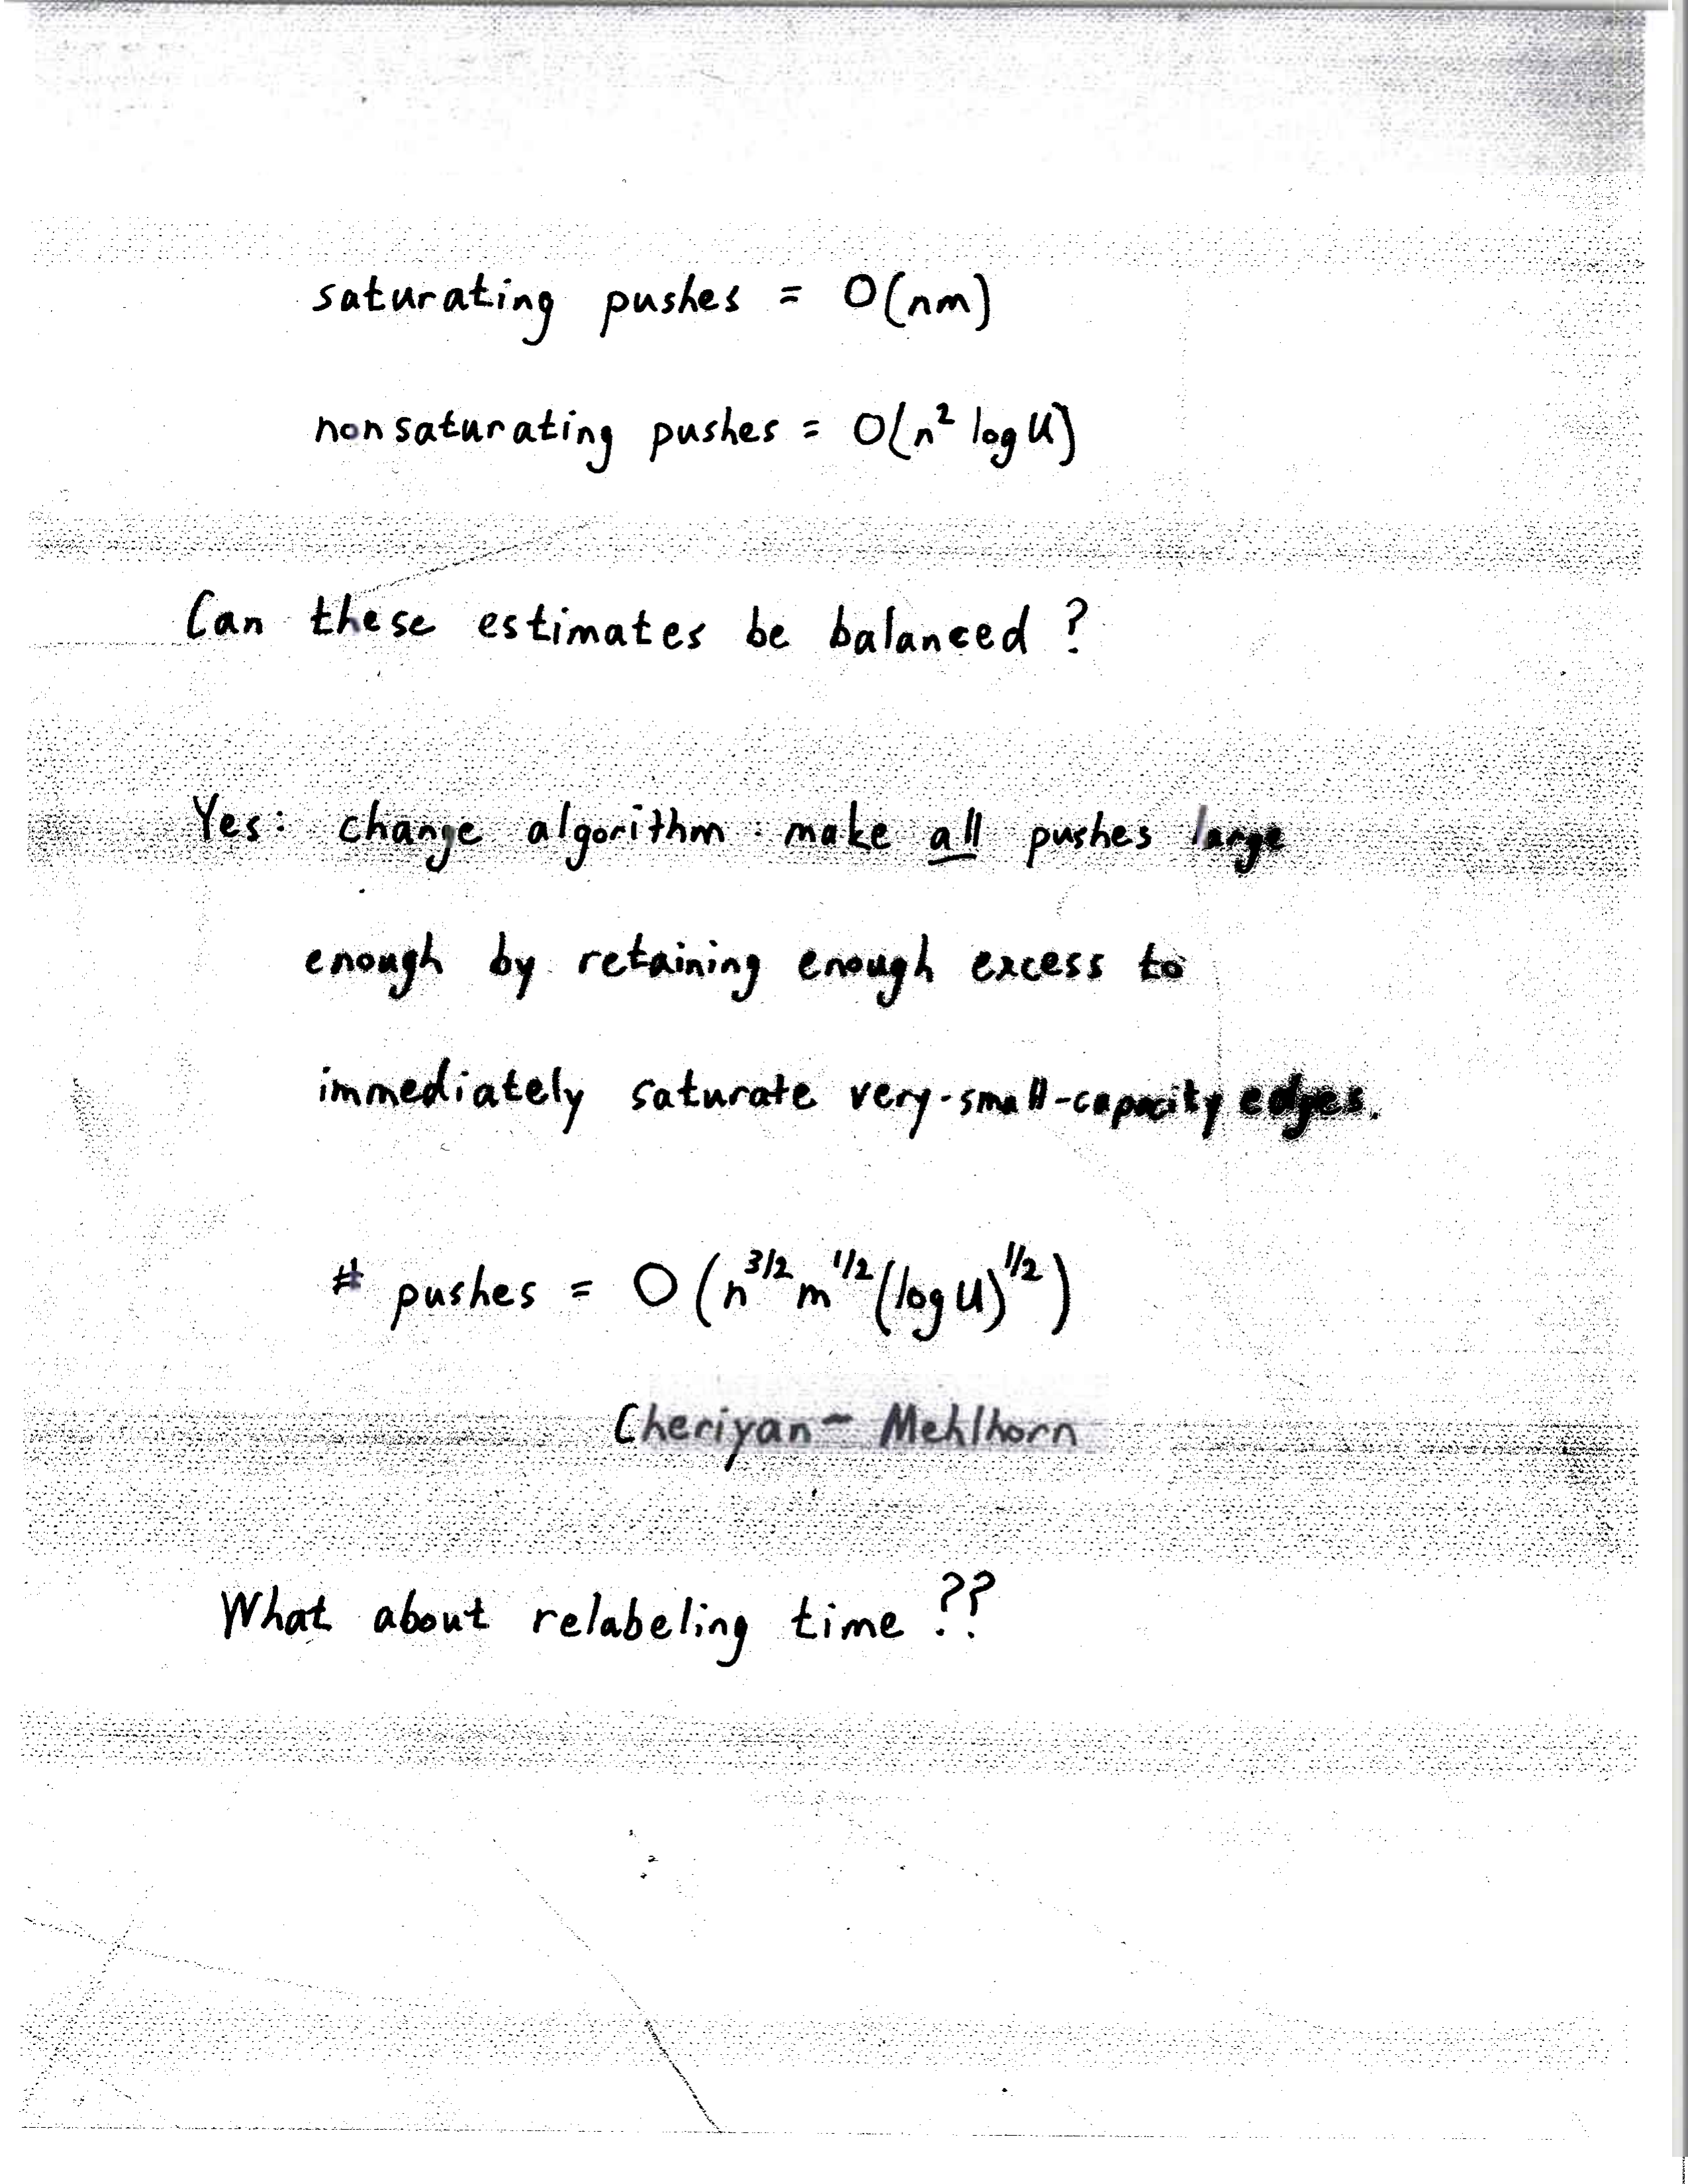 saturating pushes = O(nm)
nonsaturating pushes = O(n² log U)
Can these estimates be balanced ?
Yes: change algorithm : make all pushes large
enough by retaining enough excess to
immediately saturate very-small-capacity edges.
# pushes = O(n^{3/2} m^{1/2} (log U)^{1/2})
Cheriyan - Mehlhorn
What about relabeling time ??